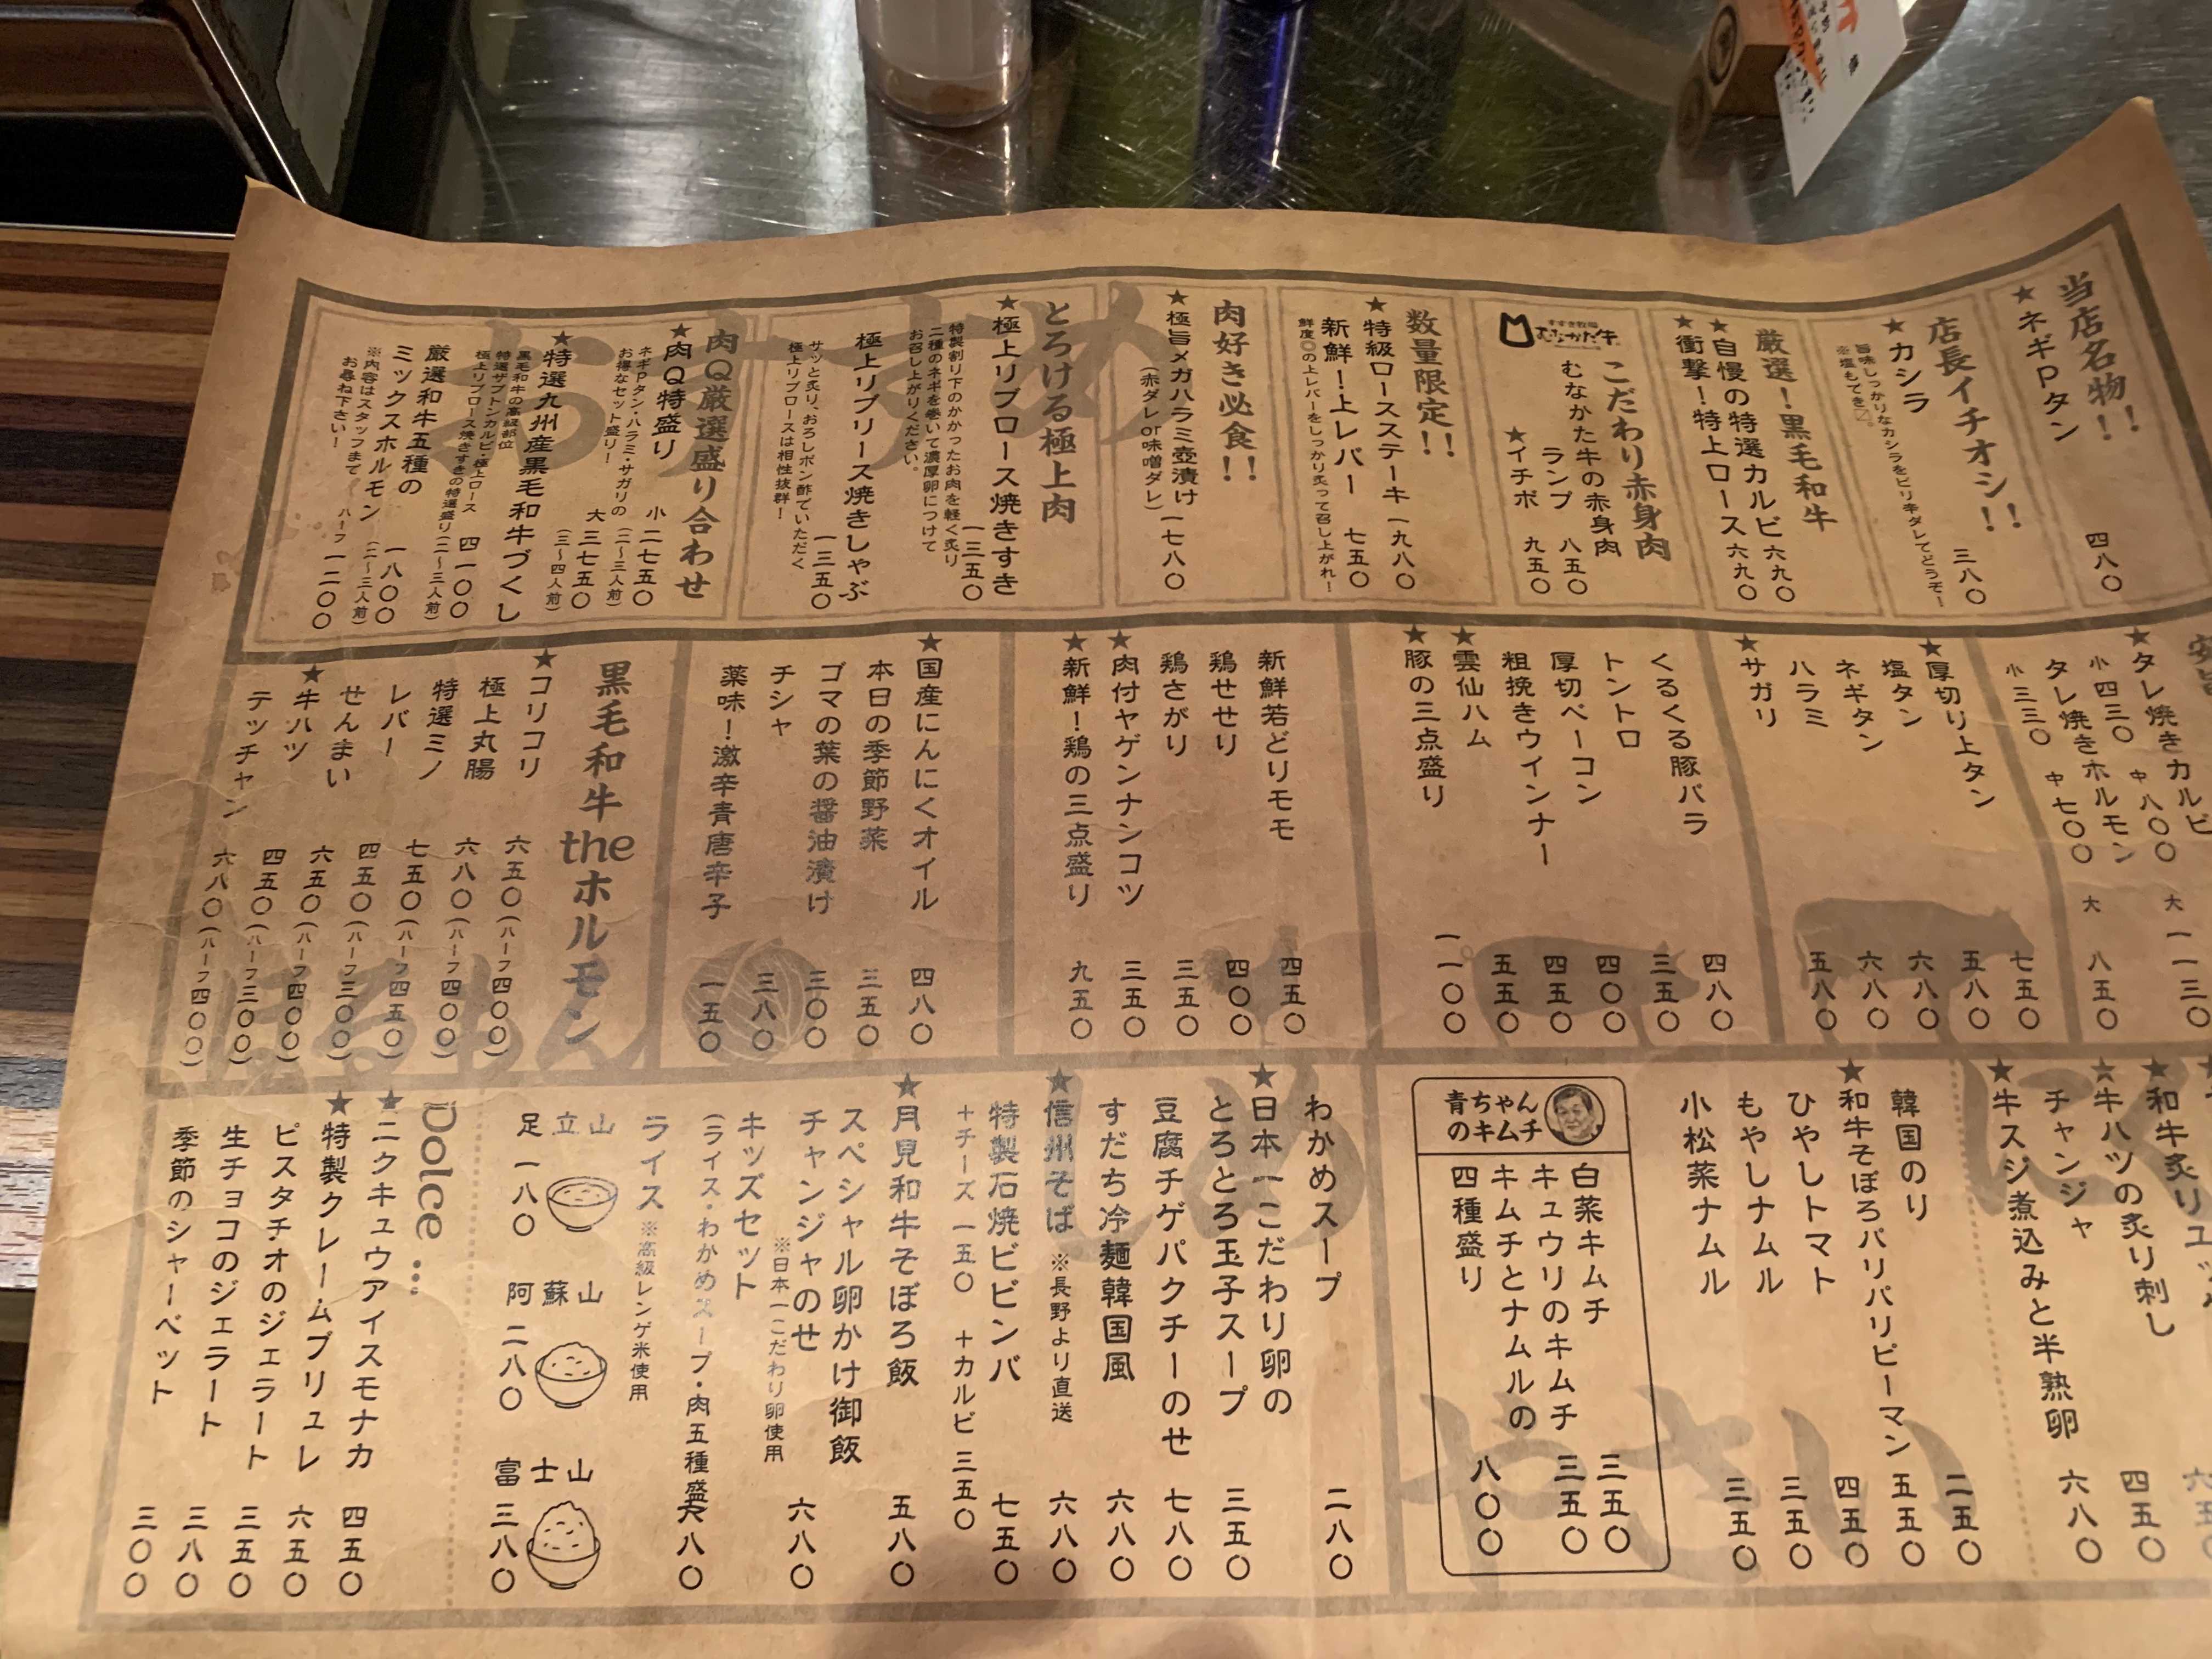 当店名物!!
★ネギPタン 四八〇
店長イチオシ!!
★カシラ 三八〇
旨味しっかりなカシラをピリ辛ダレでどうぞ!
厳選!黒毛和牛
★自慢の特選カルビ 六九〇
★衝撃!特上ロース 六九〇
こだわり赤身肉
すすき牧場
むなかた牛
むなかた牛の赤身肉
ランプ 八五〇
★イチボ 九五〇
数量限定!!
★特級ロースステーキ 一九八〇
新鮮!上レバー 七五〇
鮮度◎の上レバーをしっかり炙って召し上がれ!
肉好き必食!!
★極旨メガハラミ壺漬け 一七八〇
(赤ダレor味噌ダレ)
とろける極上肉
★極上リブロース焼きすき 一三五〇
特製割り下のかかったお肉を軽く炙り
二種のネギを巻いて濃厚卵につけて
お召し上がりください。
極上リブリース焼きしゃぶ 一三五〇
サッと炙り、おろしポン酢でいただく
極上リブロースは相性抜群!
肉Q厳選盛り合わせ
★肉Q特盛り 小 二七五〇
(二〜三人前)
ネギPタン・ハラミ・サガリの
お得なセット盛り!
大 三七五〇
(三〜四人前)
★特選九州産黒毛和牛づくし
黒毛和牛の高級部位
特選サブトンカルビ・極上ロース
極上リブロース焼きすきの特選盛り
四一〇〇
(二〜三人前)
厳選和牛五種の
ミックスホルモン 一八〇〇
(二〜三人前)
※内容はスタッフまで
お尋ね下さい!
ハーフ 一二〇〇
おすすめ
★タレ焼きカルビ
小 四三〇 中 八〇〇 大 一一三〇
タレ焼きホルモン
小 三三〇 中 七〇〇 大 八五〇
★厚切り上タン 七五〇
塩タン 五八〇
ネギタン 六八〇
ハラミ 六八〇
★サガリ 五八〇
くるくる豚バラ 四八〇
トントロ 三五〇
厚切ベーコン 四〇〇
粗挽きウインナー 四五〇
★雲仙ハム 五五〇
★豚の三点盛り 一一〇〇
新鮮若どりモモ 四五〇
鶏せせり 四〇〇
鶏さがり 三五〇
★肉付ヤゲンナンコツ 三五〇
★新鮮!鶏の三点盛り 九五〇
★国産にんにくオイル 四八〇
本日の季節野菜 三五〇
ゴマの葉の醤油漬け 三〇〇
チシャ 三八〇
薬味!激辛青唐辛子 一五〇
黒毛和牛theホルモン
★コリコリ 六五〇(ハーフ四〇〇)
極上丸腸 六八〇(ハーフ四〇〇)
特選ミノ 七五〇(ハーフ四五〇)
レバー 四五〇(ハーフ三〇〇)
せんまい 六五〇(ハーフ四〇〇)
★牛ハツ 四五〇(ハーフ三〇〇)
テッチャン 六八〇(ハーフ四〇〇)
ほるもん
★和牛炙りユッケ
★牛ハツの炙り刺し 四五〇
チャンジャ
★牛スジ煮込みと半熟卵 六八〇
韓国のり 二五〇
★和牛そぼろパリパリピーマン 五五〇
ひやしトマト 四五〇
もやしナムル 三五〇
小松菜ナムル 三五〇
やさい
青ちゃん
のキムチ
白菜キムチ 三五〇
キュウリのキムチ 三五〇
キムチとナムルの
四種盛り 八〇〇
わかめスープ 二八〇
★日本一こだわり卵の
とろとろ玉子スープ 三五〇
豆腐チゲパクチーのせ 七八〇
すだち冷麺韓国風 六八〇
★信州そば ※長野より直送 六八〇
特製石焼ビビンバ 七五〇
+チーズ 一五〇 +カルビ 三五〇
★月見和牛そぼろ飯 五八〇
スペシャル卵かけ御飯
チャンジャのせ 六八〇
※日本一こだわり卵使用
キッズセット
(ライス・わかめスープ・肉五種盛 六八〇
ライス ※高級レンゲ米使用
足立山 一八〇
阿蘇山 二八〇
富士山 三八〇
しめ
Dolce...
★ニクキュウアイスモナカ 四五〇
★特製クレームブリュレ 六五〇
ピスタチオのジェラート 三五〇
生チョコのジェラート 三八〇
季節のシャーベット 三〇〇